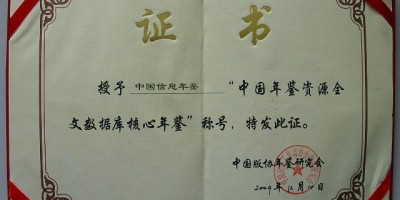 证书
授予 中国信息年鉴 “中国年鉴资源全
文数据库核心年鉴”称号，特发此证。
中国版协年鉴研究会
2009年12月10日